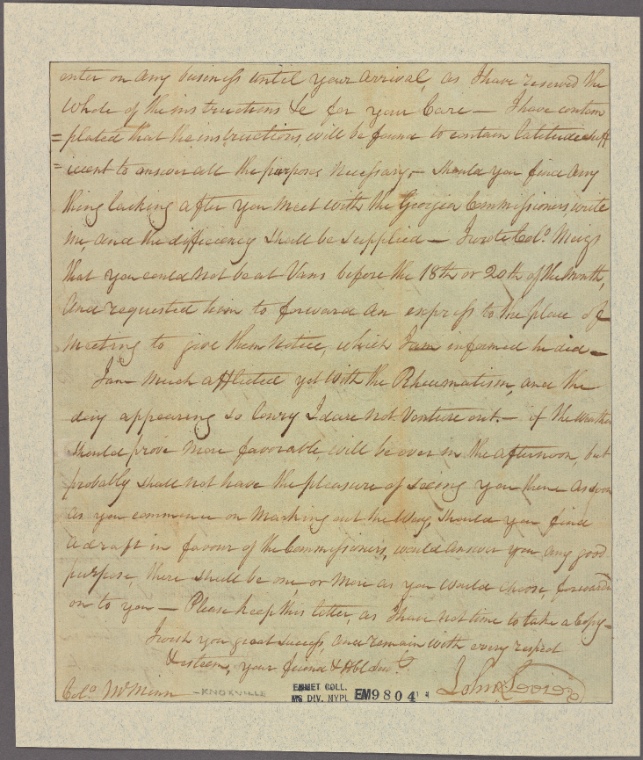 enter on any business until your arrival, as I have reserved the
whole of the instructions &c for your Care — I have contem
= plated that the instructions will be found to contain latitude suff
= icient to answer all the purposes necessary — should you find any
thing lacking after you meet with the Georgia Commissioners write
me, and the difficiency shall be supplied — I wrote Colo. Meigs
that you could not be at Vans before the 18th or 20th of the Month,
and requested him to forward an express to the place of
Meeting to give them notice, which I am informed he did —
I am much afflicted yet with the Rheumatism, and the
day appearing so lowry I dare not venture out — if the weather
should prove more favorable will be over in the afternoon, but
probably shall not have the pleasure of seeing you there as soon
as you commence on Marking out the Way, should you find
a draft in favour of the Commissioners, would answer you any good
purpose, there shall be one or more as you would choose, forwarded
on to you — Please keep this letter, as I have not time to take a Copy —
I wish you great success, and remain with every respect
& esteem, your friend & Hbl Servt.
John Sevier
Colo. McMinn — KNOXVILLE
EMMET COLL.
MS DIV. NYPL EM9804